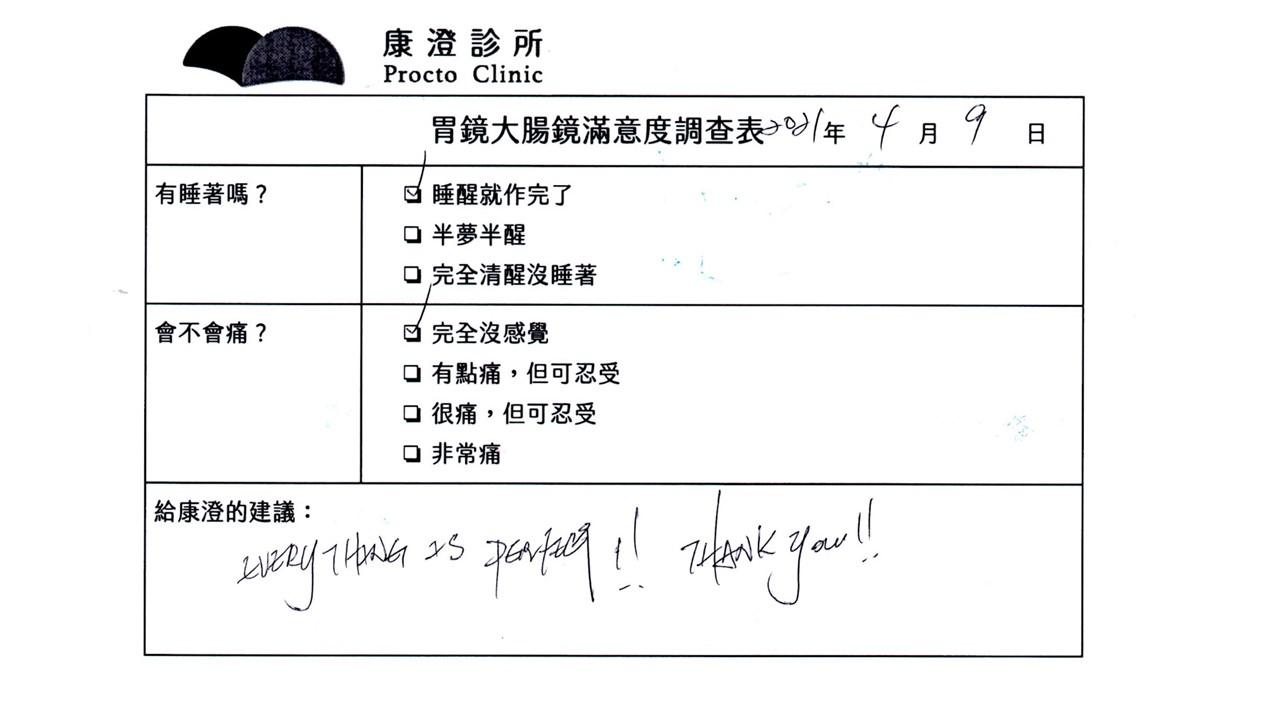 康澄診所
Procto Clinic
胃鏡大腸鏡滿意度調查表 2021年 4 月 9 日
有睡著嗎？
☑ 睡醒就作完了
☐ 半夢半醒
☐ 完全清醒沒睡著
會不會痛？
☑ 完全沒感覺
☐ 有點痛，但可忍受
☐ 很痛，但可忍受
☐ 非常痛
給康澄的建議：
EVERYTHING IS PERFECT!! THANK you!!